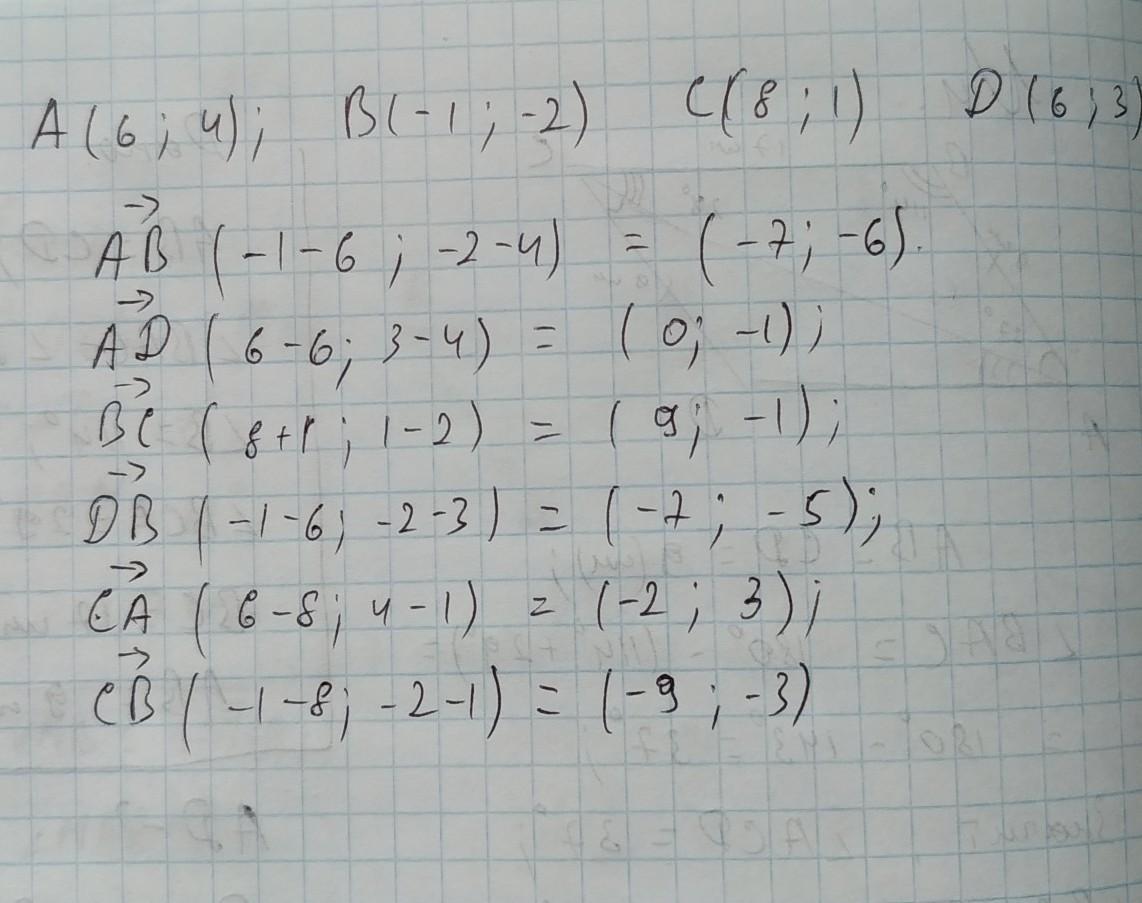 A(6; 4); B(-1; -2) C(8; 1) D(6; 3)
→AB (-1-6; -2-4) = (-7; -6).
→AD (6-6; 3-4) = (0; -1);
→BC (8+1; 1-2) = (9; -1);
→DB (-1-6; -2-3) = (-7; -5);
→CA (6-8; 4-1) = (-2; 3);
→CB (-1-8; -2-1) = (-9; -3)